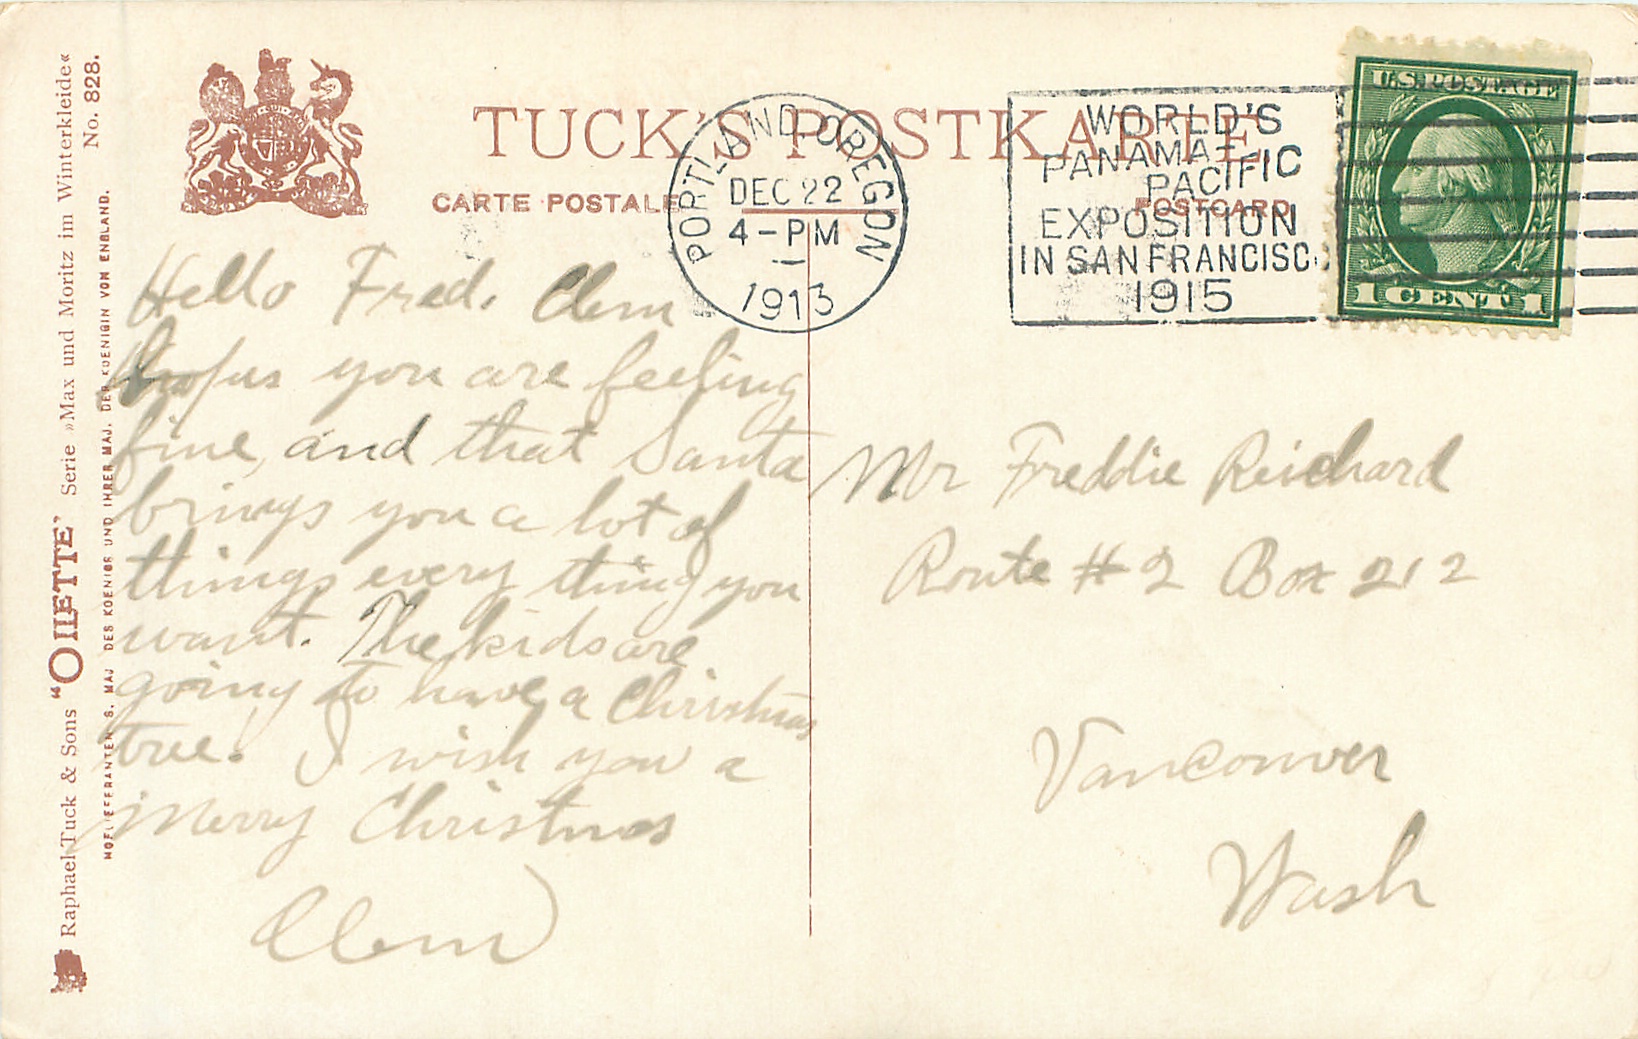 Raphael Tuck & Sons "OILETTE" Serie »Max und Moritz im Winterkleide«
No. 828.
HOFLIEFERANTEN S. MAJ DES KOENIGS UND IHRER MAJ. DER KOENIGIN VON ENGLAND.
TUCK'S POSTKARTE.
CARTE POSTALE
POSTCARD
PORTLAND OREGON
DEC 22
4-PM
1913
WORLD'S
PANAMA-
PACIFIC
EXPOSITION
IN SAN FRANCISCO
1915
U.S. POSTAGE
1 CENT 1
Hello Fred. Clem
hopes you are feeling
fine, and that Santa
brings you a lot of
things every thing you
want. The kids are
going to have a Christmas
tree. I wish you a
Merry Christmas
Clem
Mr Freddie Reichard
Route # 2 Box 212
Vancouver
Wash